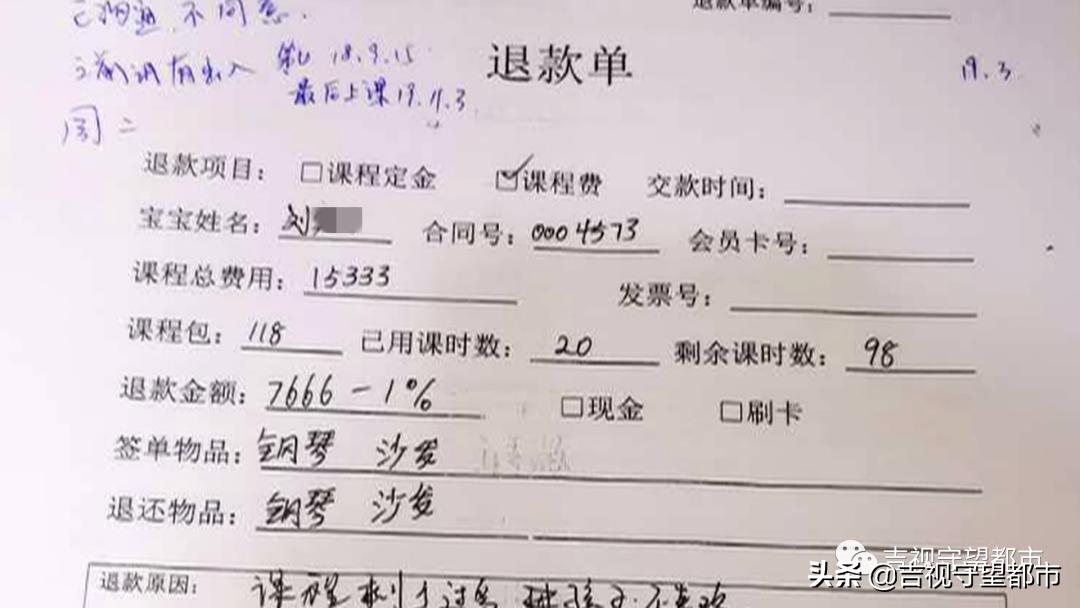 已沟通,不同意.
退款单编号:
第一 18.9.15
退款单
19.3.
最后上课19.11.3
周二
退款项目: □课程定金 ☑课程费 交款时间:
宝宝姓名: 刘 合同号: 0004573 会员卡号:
课程总费用: 15333 发票号:
课程包: 118 已用课时数: 20 剩余课时数: 98
退款金额: 7666-1% □现金 □刷卡
签单物品: 钢琴 沙发
退还物品: 钢琴 沙发
退款原因: 课程
吉视守望都市
头条@吉视守望都市